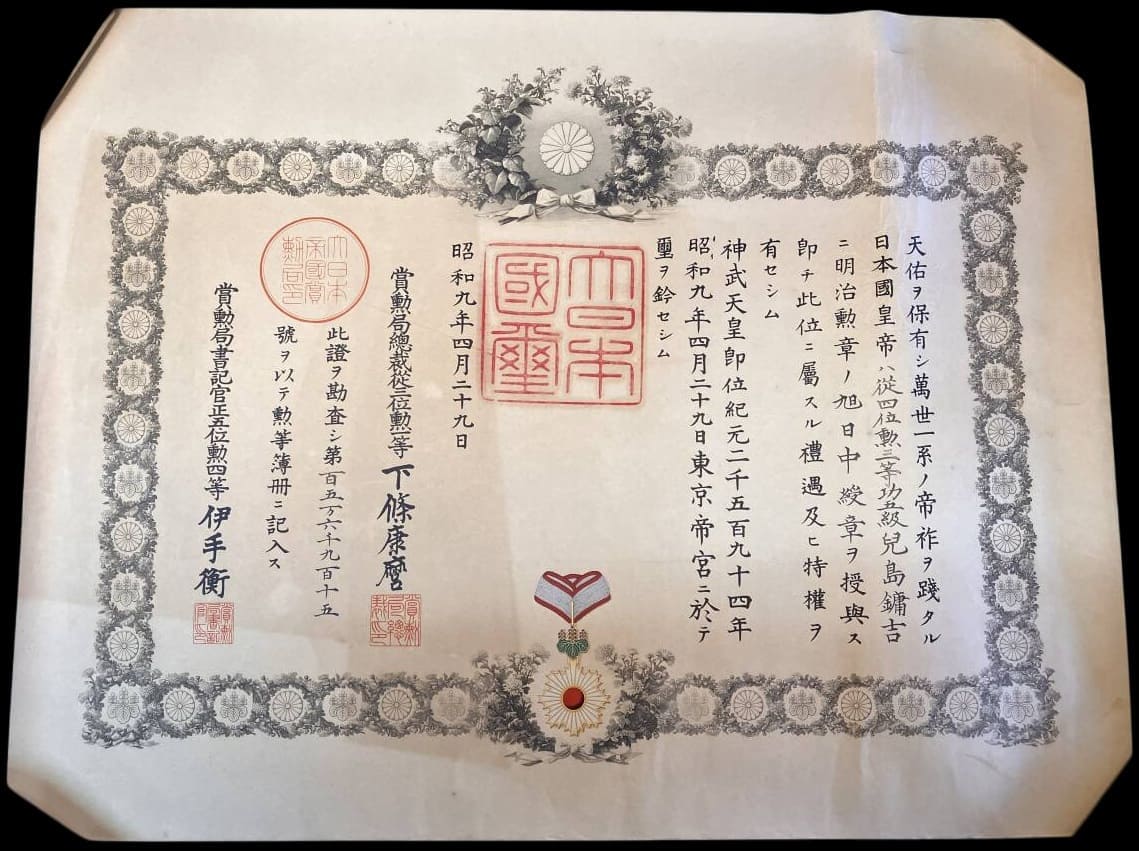 天佑ヲ保有シ萬世一系ノ帝祚ヲ踐タル
日本國皇帝ハ從四位勲三等功五級兒島鏞吉
ニ明治勲章ノ旭日中綬章ヲ授與ス
即チ此位ニ屬スル禮遇及ヒ特權ヲ
有セシム
神武天皇即位紀元二千五百九十四年
昭和九年四月二十九日東京帝宮ニ於テ
璽ヲ鈐セシム
大日本
國璽
昭和九年四月二十九日
賞勲局總裁從三位勲一等下條康麿
賞勲局總裁印
大日本
帝國賞
勲局印
此證ヲ勘査シ第百五万六千九百十五
號ヲ以テ勲等簿册ニ記入ス
賞勲局書記官正五位勲四等伊手衡
賞勲局書記官印